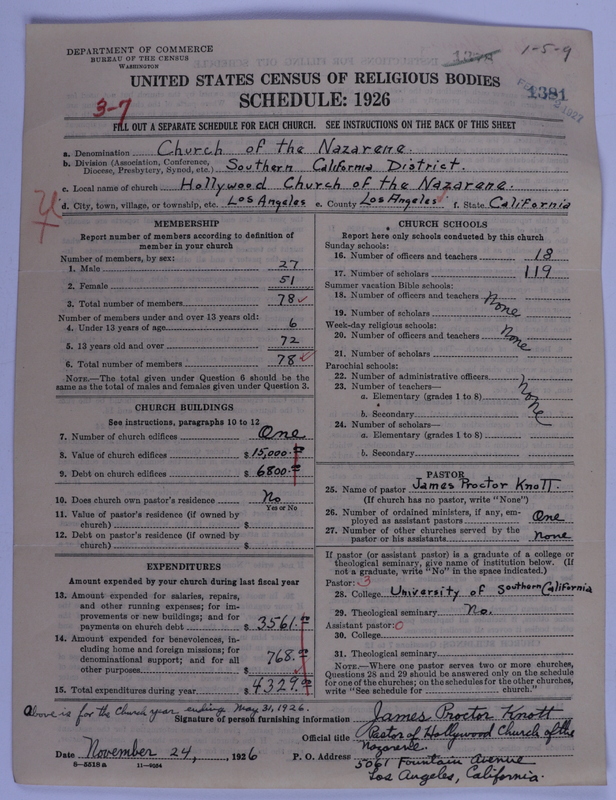 DEPARTMENT OF COMMERCE
BUREAU OF THE CENSUS
WASHINGTON
1-5-9
UNITED STATES CENSUS OF RELIGIOUS BODIES
SCHEDULE: 1926
1381
3-7
FILL OUT A SEPARATE SCHEDULE FOR EACH CHURCH. SEE INSTRUCTIONS ON THE BACK OF THIS SHEET
a. Denomination Church of the Nazarene.
b. Division (Association, Conference, Diocese, Presbytery, Synod, etc.) Southern California District.
c. Local name of church Hollywood Church of the Nazarene.
d. City, town, village, or township, etc. Los Angeles e. County Los Angeles f. State California
MEMBERSHIP
Report number of members according to definition of
member in your church
Number of members, by sex:
1. Male 27
2. Female 51
3. Total number of members 78
Number of members under and over 13 years old:
4. Under 13 years of age 6
5. 13 years old and over 72
6. Total number of members 78
NOTE.—The total given under Question 6 should be
same as the total of males and females given under Question 3.
CHURCH BUILDINGS
See instructions, paragraphs 10 to 12
7. Number of church edifices One
8. Value of church edifices $ 15,000.00
9. Debt on church edifices $ 6800.00
10. Does church own pastor's residence No
Yes or No
11. Value of pastor's residence (if owned by
church) $
12. Debt on pastor's residence (if owned by
church) $
EXPENDITURES
Amount expended by your church during last fiscal year
13. Amount expended for salaries, repairs,
and other running expenses; for im-
provements or new buildings; and for
payments on church debt $ 3561.00
14. Amount expended for benevolences, in-
cluding home and foreign missions; for
denominational support; and for all
other purposes $ 768.00
15. Total expenditures during year $ 4329.00
CHURCH SCHOOLS
Report here only schools conducted by this church
Sunday schools:
16. Number of officers and teachers 18
17. Number of scholars 119
Summer vacation Bible schools:
18. Number of officers and teachers None
19. Number of scholars
Week-day religious schools:
20. Number of officers and teachers None
21. Number of scholars
Parochial schools:
22. Number of administrative officers
23. Number of teachers— None
a. Elementary (grades 1 to 8)
b. Secondary
24. Number of scholars—
a. Elementary (grades 1 to 8)
b. Secondary
PASTOR
25. Name of pastor James Proctor Knott.
(If church has no pastor, write "None")
26. Number of ordained ministers, if any, em-
ployed as assistant pastors One
27. Number of other churches served by the
pastor or his assistants None
If pastor (or assistant pastor) is a graduate of a college or
theological seminary, give name of institution below. (If
not a graduate, write "No" in the space indicated.)
Pastor: 3
28. College University of Southern California
29. Theological seminary No.
Assistant pastor: 0
30. College
31. Theological seminary
NOTE.—Where one pastor serves two or more churches,
Questions 28 and 29 should be answered only on the schedule
for one of the churches; on the schedules for the other churches,
write "See schedule for church."
Above is for the Church year ending May 31, 1926.
Signature of person furnishing information James Proctor Knott
Official title Pastor of Hollywood Church of the
Nazarene.
Date November 24, 1926 P. O. Address 5061 Fountain Avenue
Los Angeles, California.
8-5518a 11-9054